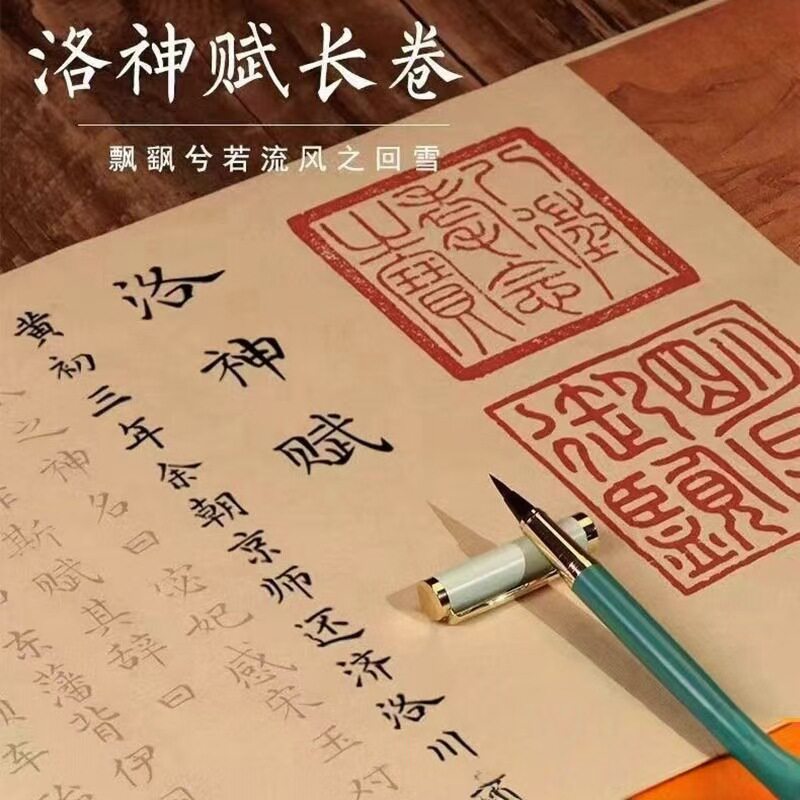 洛神赋长卷
飘飖兮若流风之回雪
八徵耄念之寶
洛神赋
黄初三年余朝京师还济洛川
之神名曰宓妃感宋玉对
作斯赋其辞曰
东藩背伊
车殆